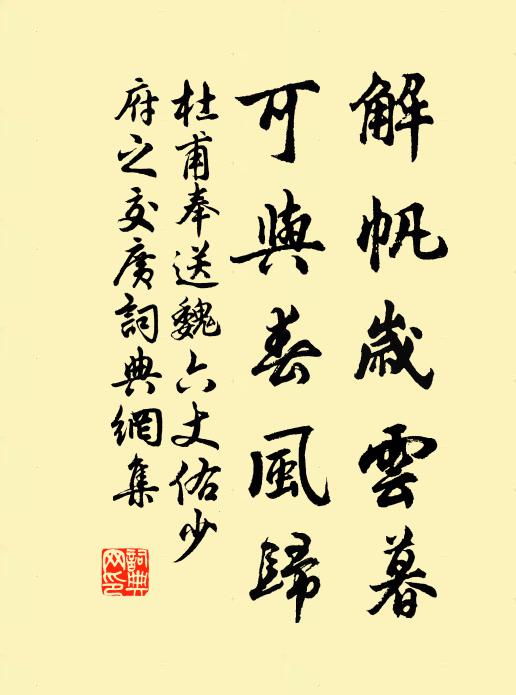 解帆歲雲暮
可與春風歸
杜甫奉送魏六丈佑少
府之交廣詞典網集
詞典
网印